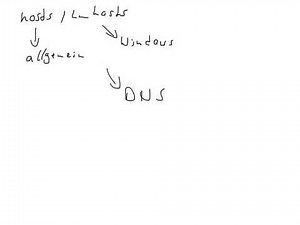 hosds / Lm hosts
Windows
allgemein
DNS